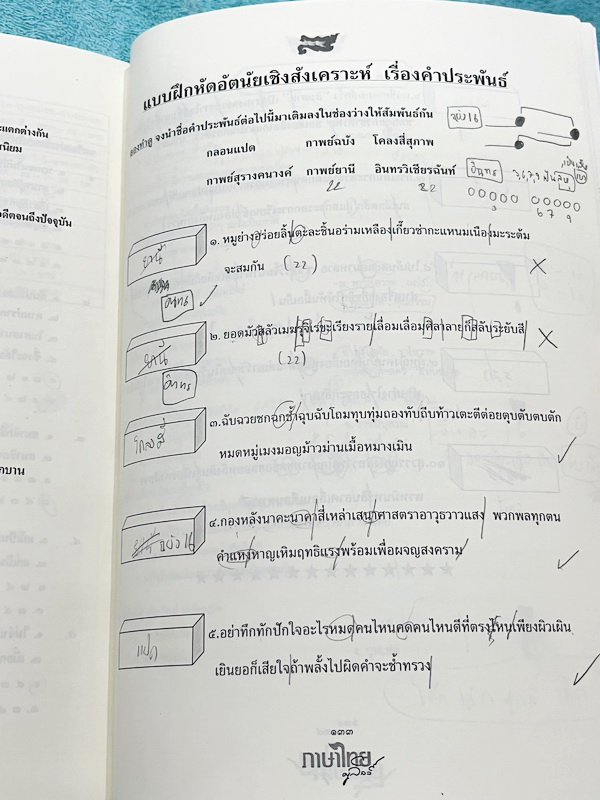 แบบฝึกหัดอัตนัยเชิงสังเคราะห์ เรื่องคำประพันธ์
ลองทำดู จงนำชื่อคำประพันธ์ต่อไปนี้มาเติมลงในช่องว่างให้สัมพันธ์กัน ฉบัง 16
กลอนแปด กาพย์ฉบัง โคลงสี่สุภาพ
กาพย์สุรางคนางค์ กาพย์ยานี อินทรวิเชียรฉันท์
22 22
แตกต่างกัน
รนิยม
อดีตจนถึงปัจจุบัน
ยานี
๑. หมูย่างอร่อยลิ้นเตะละชิ้นอร่ามเหลืองเกี๊ยวซ่ากะแหนมเนืองเมะระต้ม
จะสมกัน (22)
อินทร
๒. ยอดมัวสลัวเมฆรุจิเรขะเรียงรายเลื่อมเลื่อมศิลาลายก็สลับระยับสี
(22)
อินทร
๓. ฉับฉวยชกฉกช้ำฉุบฉับโถมทุบทุ่มถองทับถีบท้าวเตะตีต่อยตุบตับตบตัก
หมดหมู่เมงมอญม้าวม่านเมื้อหมางเมิน
๔. กองหลังนาคะนาคาสี่เหล่าเสนาศาสตราอาวุธวาวแสง พวกพลทุกตน
คำแหงหาญเหิมฤทธิแรงพร้อมเพื่อผจญสงคราม
ฉบัง 16
๕. อย่าทึกทักปักใจอะไรหมดคนไหนคดคนไหนดีที่ตรงไหนเพียงผิวเผิน
เยินยอก็เสียใจถ้าพลั้งไปผิดคำจะช้ำทรวง
แปด
๑๓๓
ภาษาไทย